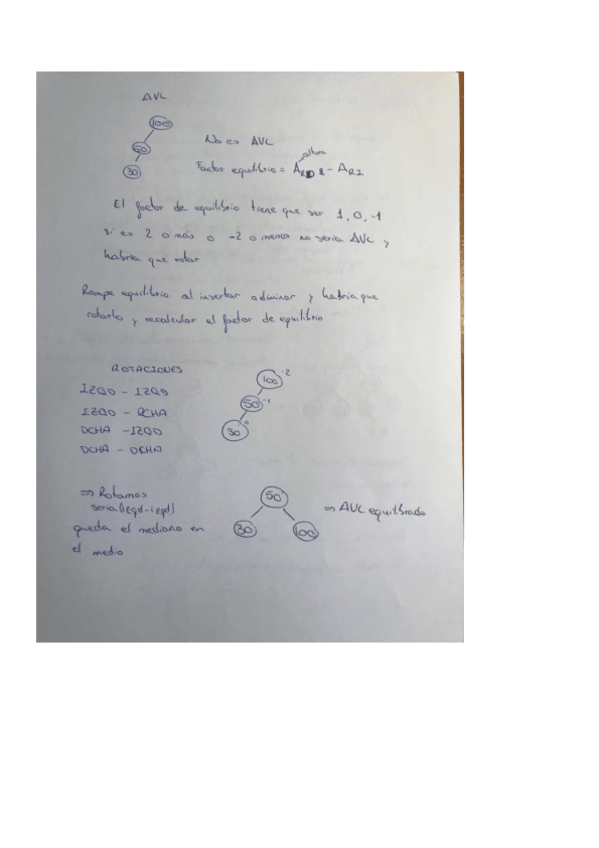 AVL
100
50
30
No es AVL
altura
Factor equilibrio = A_RD - A_RI
El factor de equilibrio tiene que ser 1, 0, -1
si es 2 o más o -2 o menos no sería AVL y
habría que rotar
Rompe equilibrio al insertar o eliminar y habría que
rotarlo y recalcular el factor de equilibrio
ROTACIONES
IZQD - IZQD
IZQD - DCHA
DCHA - IZQD
DCHA - DCHA
100 -2
50 -1
30 0
=> Rotamos
queda el mediano en
el medio
50
30 100
=> AVL equilibrado